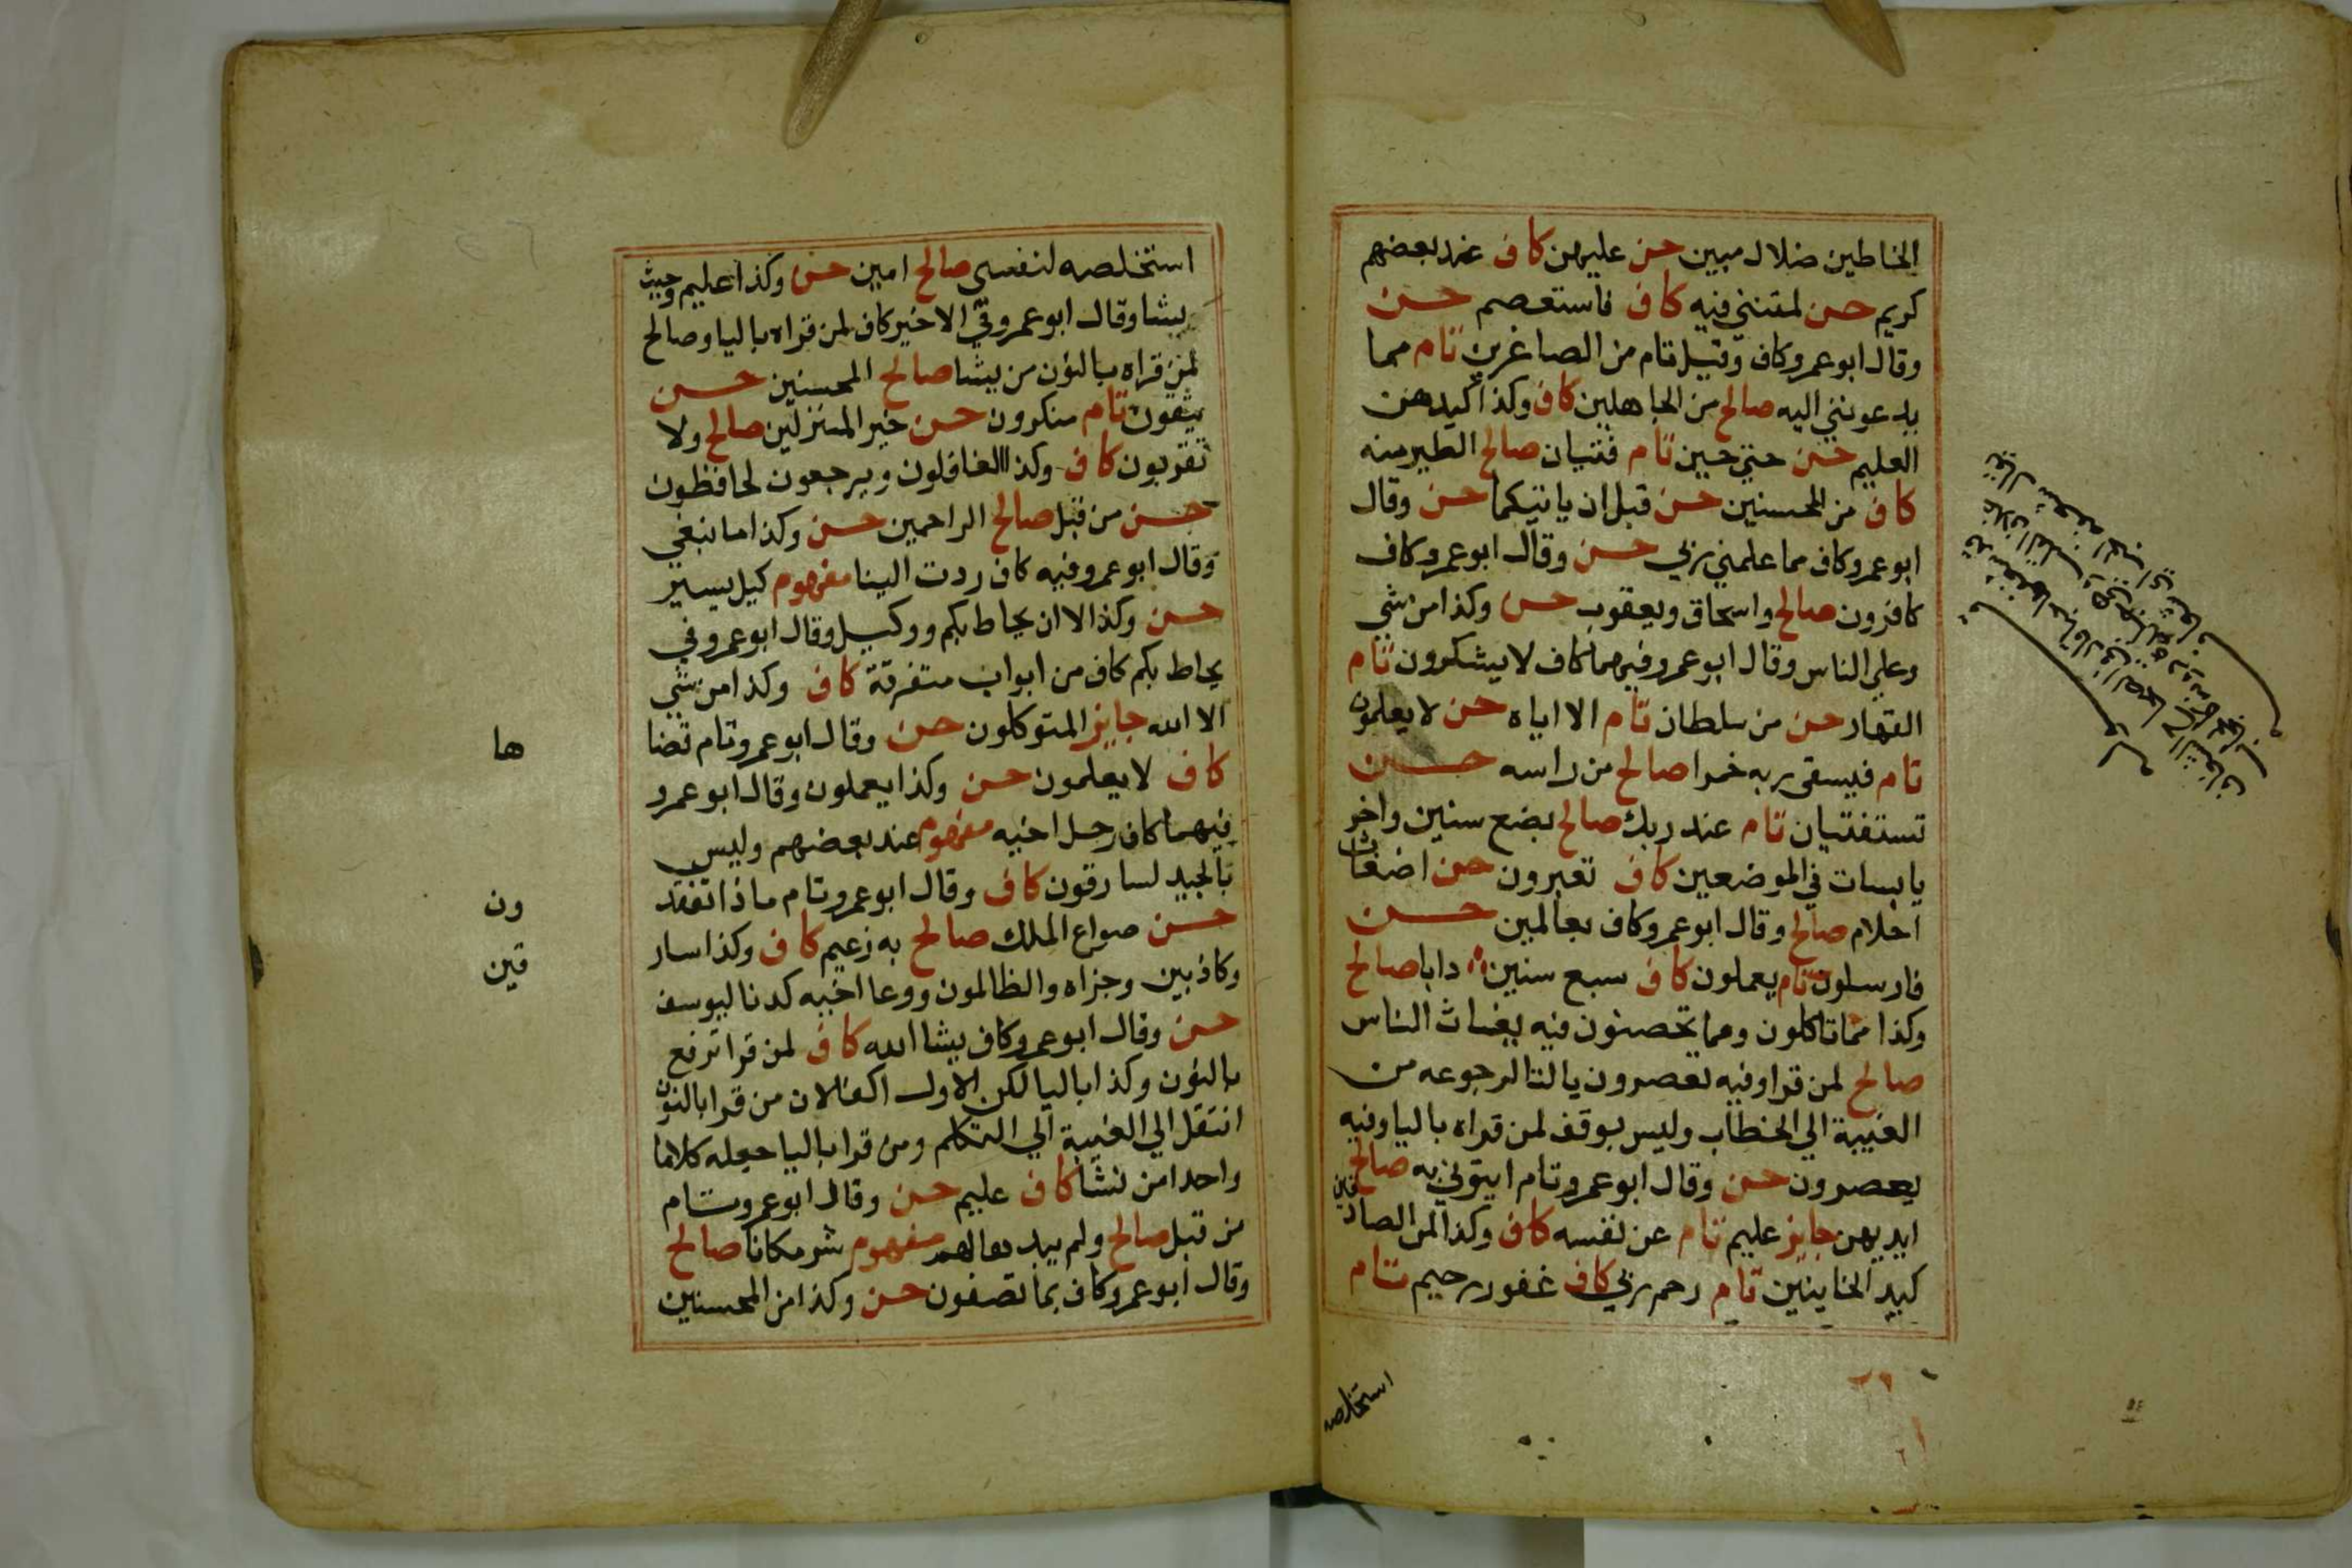 الخاطين ضلال مبين حسن عليهن كاف عند بعضهم
كريم حسن لمتنني فيه كاف فاستعصم حسن
وقال ابو عمرو كاف وقيل تام من الصاغرين تام مما
يدعونني اليه صالح من الجاهلين كاف وكذا كيدهن
العليم حسن حتي حين تام فتيان صالح الطير منه
كاف من المحسنين حسن قبل ان ياتيكما حسن وقال
ابو عمرو كاف مما علمني ربي حسن وقال ابو عمرو كاف
كافرون صالح واسحاق ويعقوب حسن وكذا من شي
وعلي الناس وقال ابو عمرو فيهما كاف لا يشكرون تام
القهار حسن من سلطان تام الا اياه حسن لا يعلمون
تام فيسقي ربه خمرا صالح من راسه حسن
تستفتيان تام عند ربك صالح بضع سنين واخر
يابسات في الموضعين كاف تعبرون حسن اضغاث
احلام صالح وقال ابو عمرو كاف بعالمين حسن
فارسلون تام يعملون كاف سبع سنين دابا صالح
وكذا مما تاكلون ومما تحصنون فيه يغاث الناس
صالح لمن قرا وفيه تعصرون بالتا لرجوعه من
الغيبة الي الخطاب وليس بوقف لمن قراه باليا وفيه
يعصرون حسن وقال ابو عمرو تام ايتوني به صالح
ايديهن جايز عليم تام عن نفسه كاف وكذا لمن الصادقين
كيد الخاينين تام رحم ربي كاف غفور رحيم تام
استخلصه
استخلصه لنفسي صالح امين حسن وكذا عليم وحيث
يشا وقال ابو عمرو في الاخير كاف لمن قراه باليا وصالح
لمن قراه بالنون من يشا صالح المحسنين حسن
يتقون تام منكرون حسن خير المنزلين صالح ولا
تقربون كاف وكذا لفاعلون ويرجعون لحافظون
حسن من قبل صالح الراحمين حسن وكذا ما نبغي
وقال ابو عمرو فيه كاف ردت الينا مفهوم كيل يسير
حسن وكذا الا ان يحاط بكم ووكيل وقال ابو عمرو في
يحاط بكم كاف من ابواب متفرقة كاف وكذا من شي
الا الله جايز المتوكلون حسن وقال ابو عمرو تام قضاها
كاف لا يعلمون حسن وكذا يعملون وقال ابو عمرو
فيهما كاف رحل اخيه مفهوم عند بعضهم وليس
بالجيد لسارقون كاف وقال ابو عمرو تام ماذا تفقدون
حسن صواع الملك صالح به زعيم كاف وكذا سارقين
وكاذبين وجزاه والظالمون ووعا اخيه كدنا ليوسف
حسن وقال ابو عمرو كاف يشا الله كاف لمن قرا نرفع
بالنون وكذا باليا لكن الاول اكفالان من قرا بالنون
انتقل الي الغيبة الي التكلم ومن قرا باليا جعله كلاما
واحدا من نشا كاف عليم حسن وقال ابو عمرو تام
من قبل صالح ولم يبدها لهم مفهوم شر مكانا صالح
وقال ابو عمرو كاف بما تصفون حسن وكذا من المحسنين